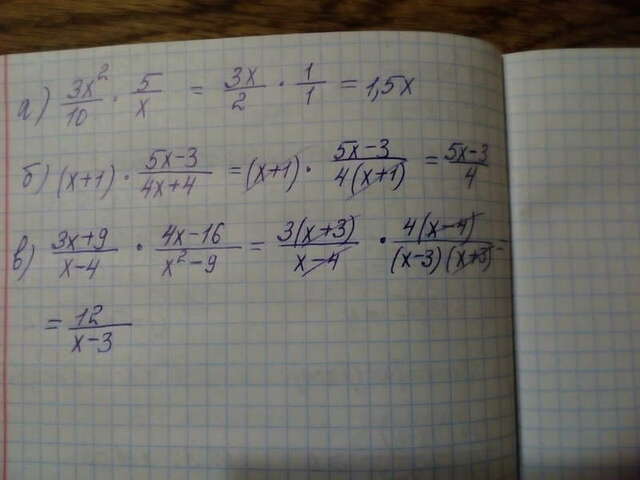 а) 3x²/10 · 5/x = 3x/2 · 1/1 = 1,5x
б) (x+1) · (5x-3)/(4x+4) = (x+1) · (5x-3)/(4(x+1)) = (5x-3)/4
в) (3x+9)/(x-4) · (4x-16)/(x²-9) = (3(x+3))/(x-4) · (4(x-4))/((x-3)(x+3)) =
= 12/(x-3)